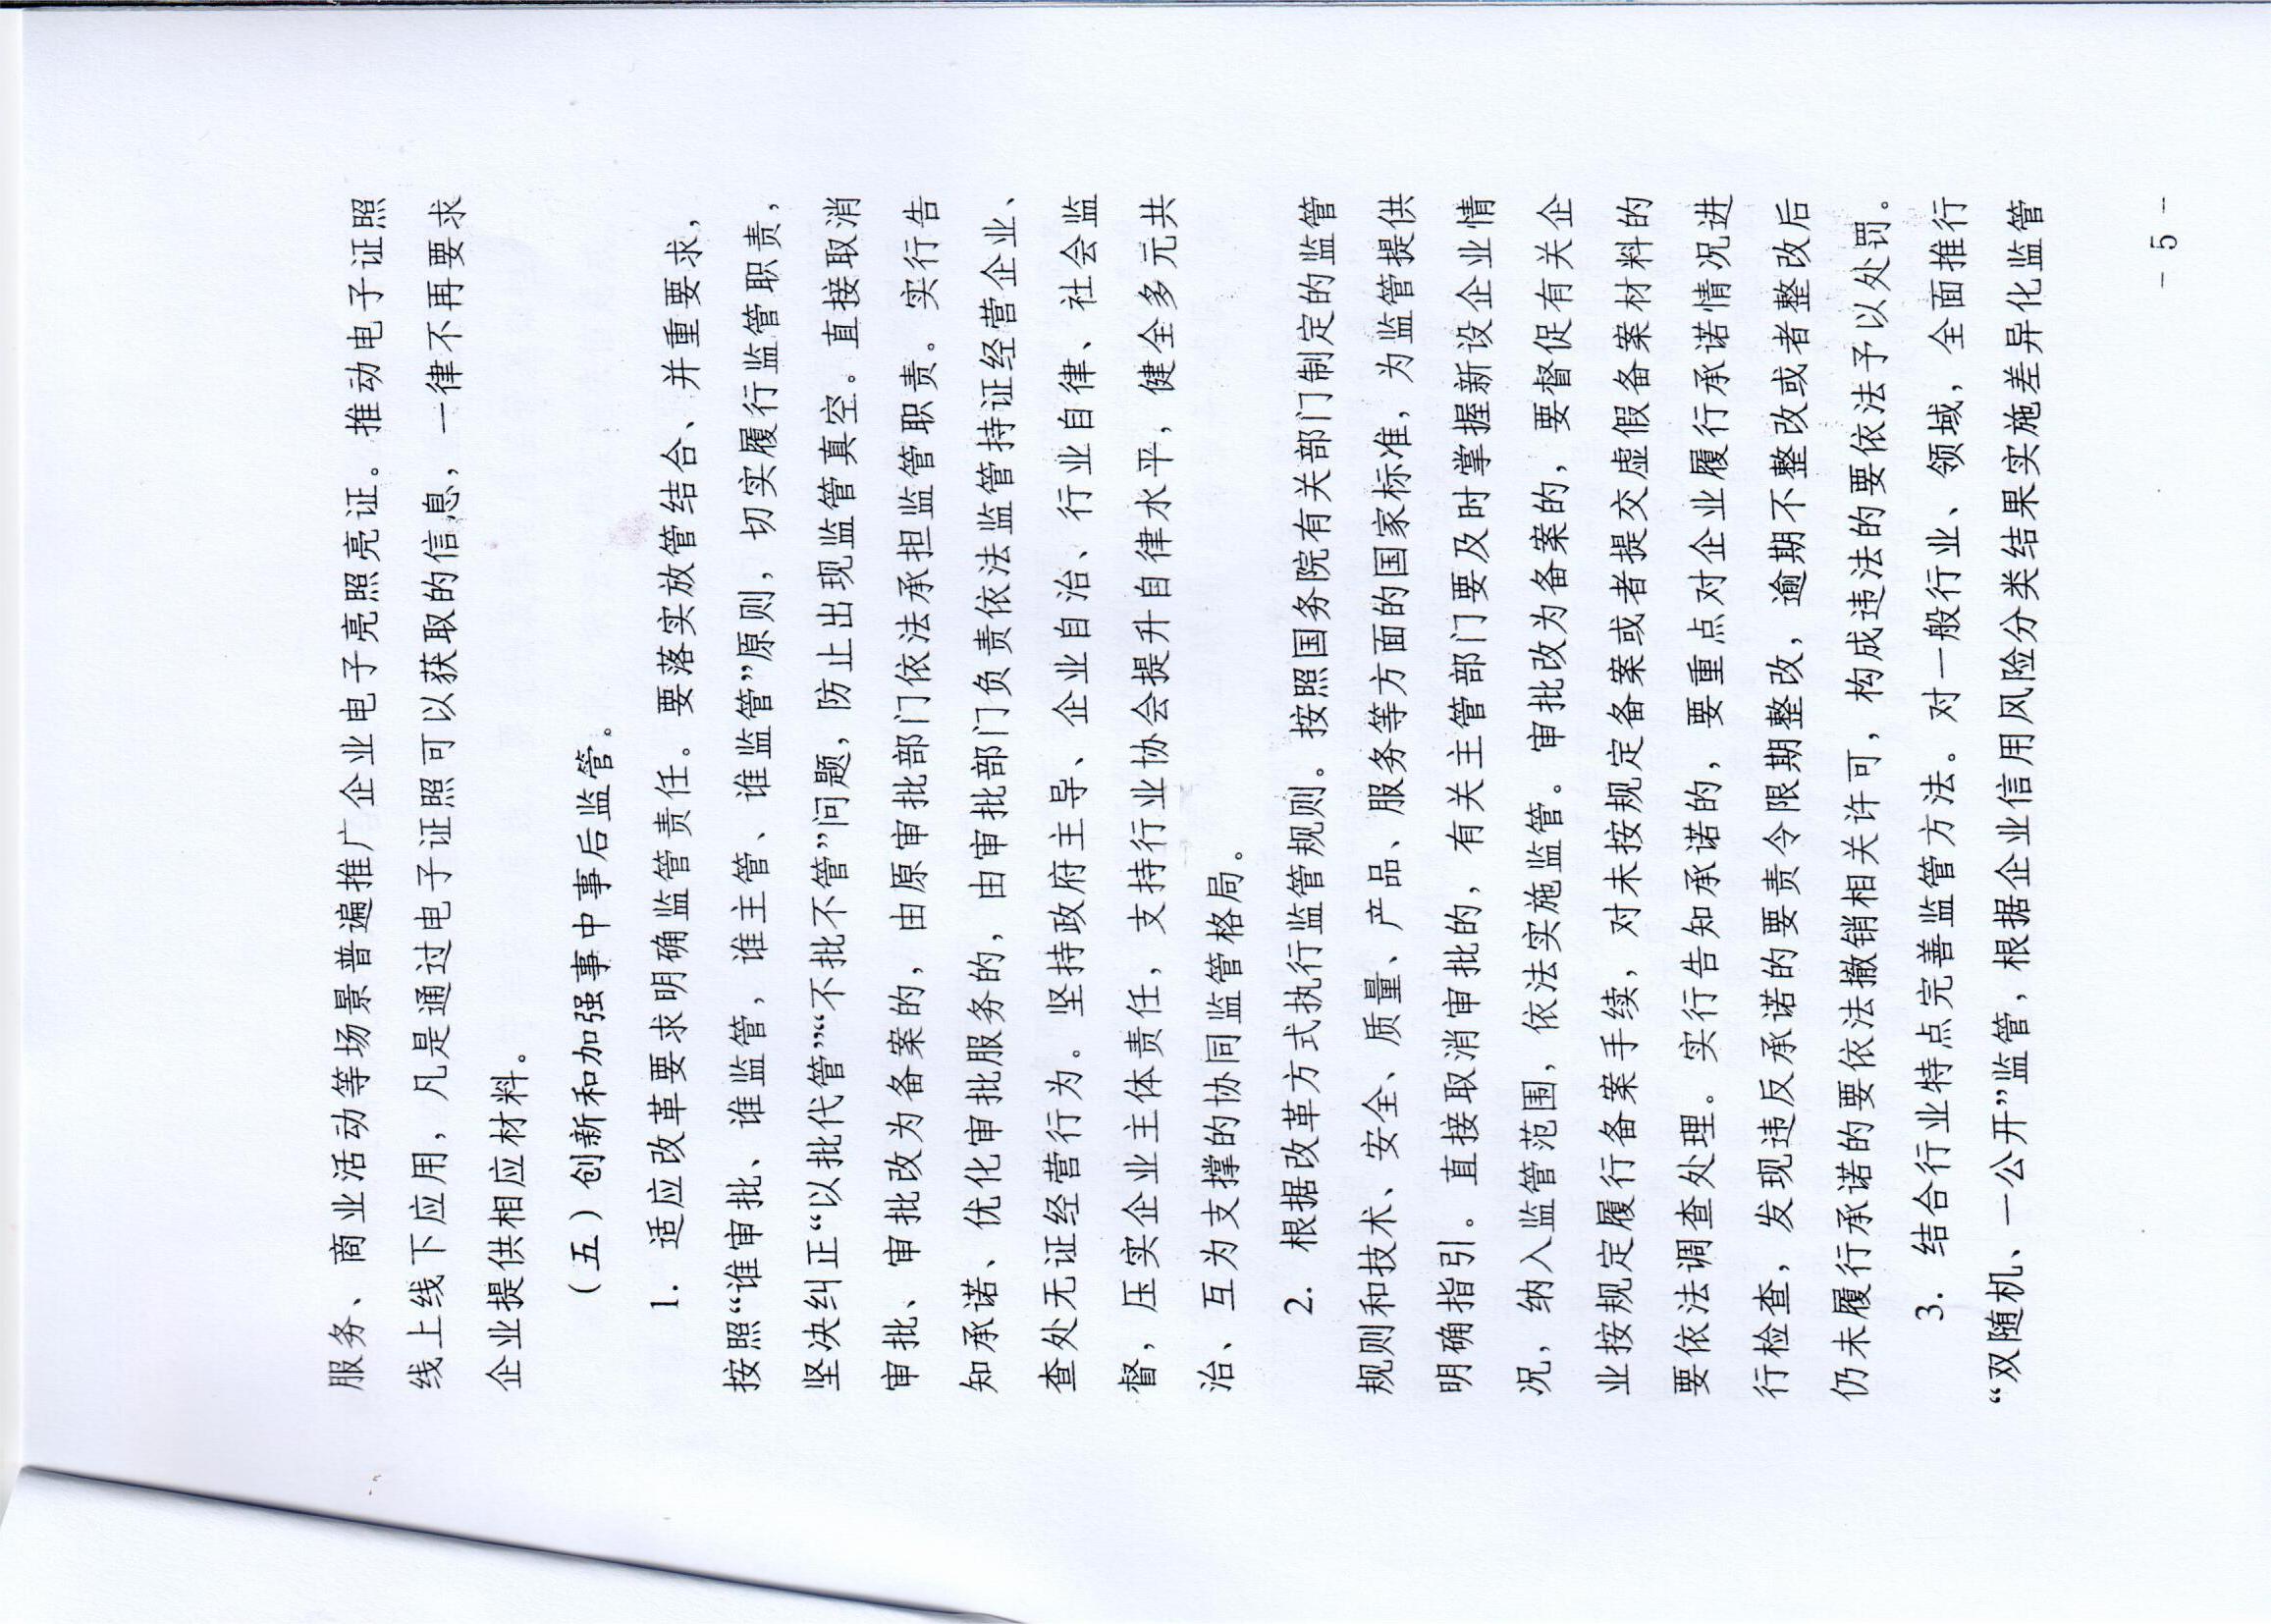 服务、商业活动等场景普遍推广企业电子亮照亮证。推动电子证照
线上线下应用，凡是通过电子证照可以获取的信息，一律不再要求
企业提供相应材料。
（五）创新和加强事中事后监管。
1. 适应改革要求明确监管责任。要落实放管结合、并重要求，
按照“谁审批、谁监管，谁主管、谁监管”原则，切实履行监管职责，
坚决纠正“以批代管”“不批不管”问题，防止出现监管真空。直接取消
审批、审批改为备案的，由原审批部门依法承担监管职责。实行告
知承诺、优化审批服务的，由审批部门负责依法监管持证经营企业、
查处无证经营行为。坚持政府主导、企业自治、行业自律、社会监
督，压实企业主体责任，支持行业协会提升自律水平，健全多元共
治、互为支撑的协同监管格局。
2. 根据改革方式执行监管规则。按照国务院有关部门制定的监管
规则和技术、安全、质量、产品、服务等方面的国家标准，为监管提供
明确指引。直接取消审批的，有关主管部门要及时掌握新设企业情
况，纳入监管范围，依法实施监管。审批改为备案的，要督促有关企
业按规定履行备案手续，对未按规定备案或者提交虚假备案材料的
要依法调查处理。实行告知承诺的，要重点对企业履行承诺情况进
行检查，发现违反承诺的要责令限期整改，逾期不整改或者整改后
仍未履行承诺的要依法撤销相关许可，构成违法的要依法予以处罚。
3. 结合行业特点完善监管方法。对一般行业、领域，全面推行
“双随机、一公开”监管，根据企业信用风险分类结果实施差异化监管
－ 5 －